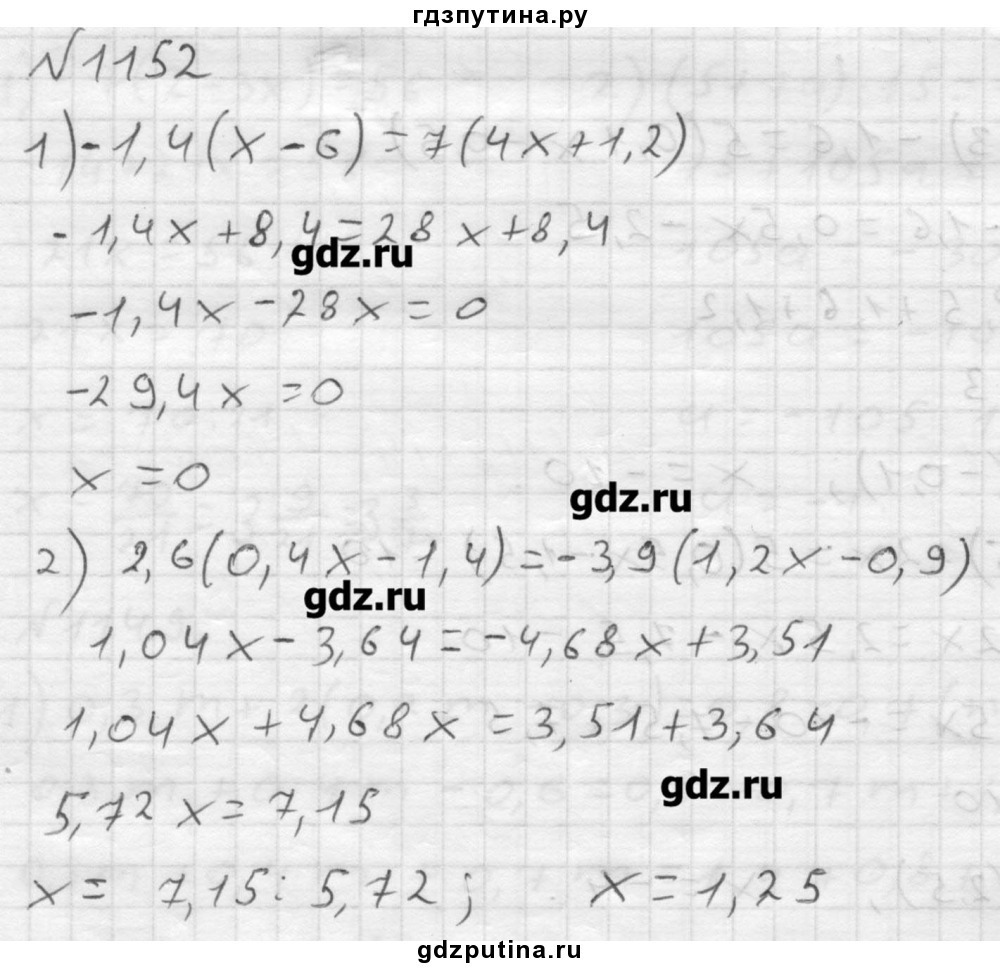 гдзпутина.ру
№1152
1) -1,4(x-6)=7(4x+1,2)
-1,4x+8,4=28x+8,4
gdz.ru
-1,4x-28x=0
-29,4x=0
x=0
gdz.ru
2) 2,6(0,4x-1,4)=-3,9(1,2x-0,9)
gdz.ru
1,04x-3,64=-4,68x+3,51
1,04x+4,68x=3,51+3,64
gdz.ru
5,72x=7,15
x=7,15:5,72; x=1,25
gdzputina.ru